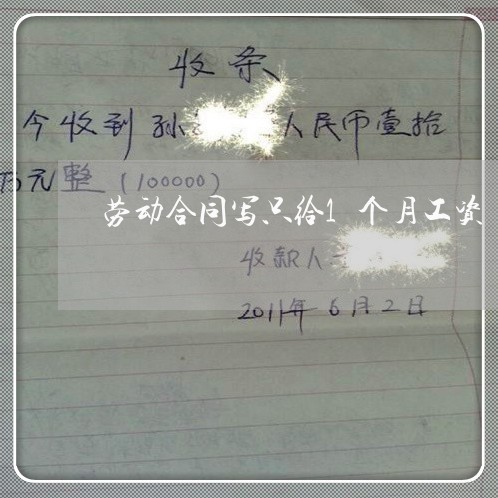 收条
今收到孙 人民币壹拾
万元整（100000）
劳动合同写只给1个月工资
收款人
2011年6月2日